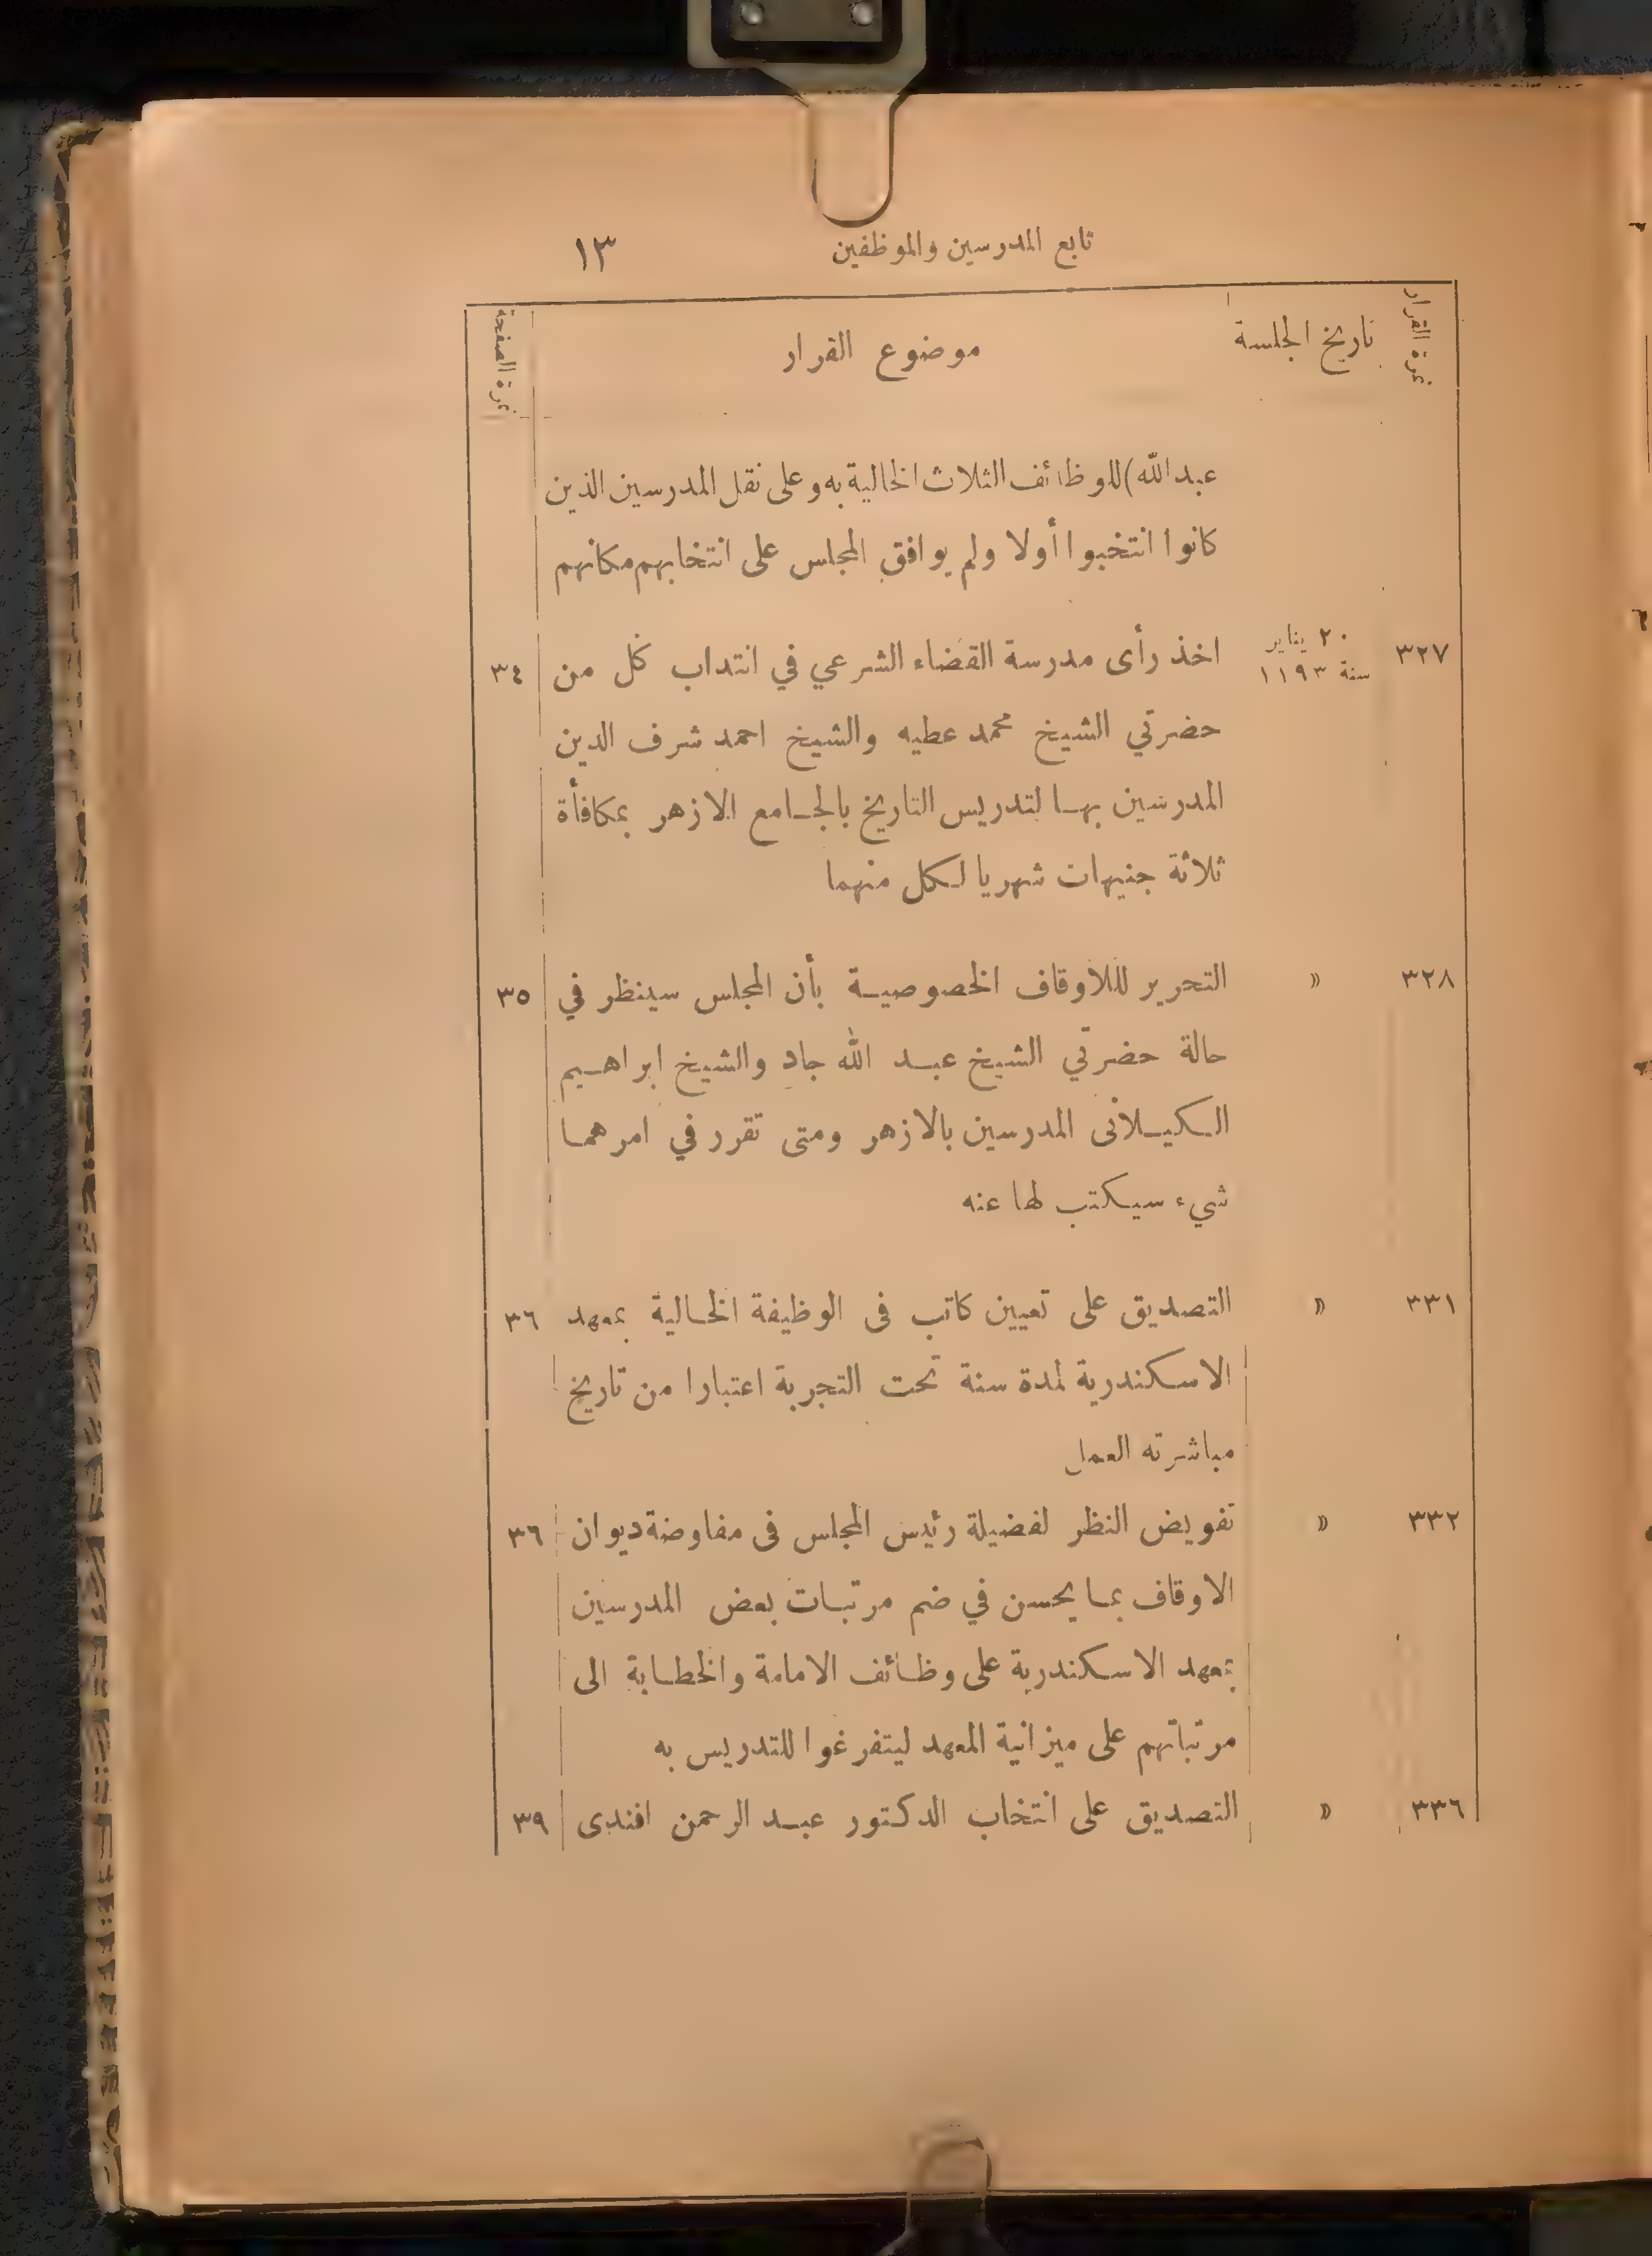 تابع المدرسين والموظفين ١٣
نمرة القرار تاريخ الجلسة موضوع القرار نمرة الصفحة
عبد الله) للوظائف الثلاث الخالية به وعلى نقل المدرسين الذين
كانوا انتخبوا أولا ولم يوافق المجلس على انتخابهم مكانهم
٣٢٧ ٢٠ يناير سنة ١١٩٣ اخذ رأى مدرسة القضاء الشرعي في انتداب كل من ٣٤
حضرتي الشيخ محمد عطيه والشيخ احمد شرف الدين
المدرسين بها لتدريس التاريخ بالجامع الازهر بمكافأة
ثلاثة جنيهات شهريا لكل منهما
٣٢٨ » التحرير للاوقاف الخصوصية بأن المجلس سينظر في ٣٥
حالة حضرتي الشيخ عبد الله جاد والشيخ ابراهيم
الكيلانى المدرسين بالازهر ومتى تقرر في امرهما
شيء سيكتب لها عنه
٣٣١ » التصديق على تعيين كاتب فى الوظيفة الخالية بمعهد ٣٦
الاسكندرية لمدة سنة تحت التجربة اعتبارا من تاريخ
مباشرته العمل
٣٣٢ » تفويض النظر لفضيلة رئيس المجلس فى مفاوضة ديوان ٣٦
الاوقاف بما يحسن في ضم مرتبات بعض المدرسين
بمعهد الاسكندرية على وظائف الامامة والخطابة الى
مرتباتهم على ميزانية المعهد ليتفرغوا للتدريس به
٣٣٦ » التصديق على انتخاب الدكتور عبد الرحمن افندى ٣٩